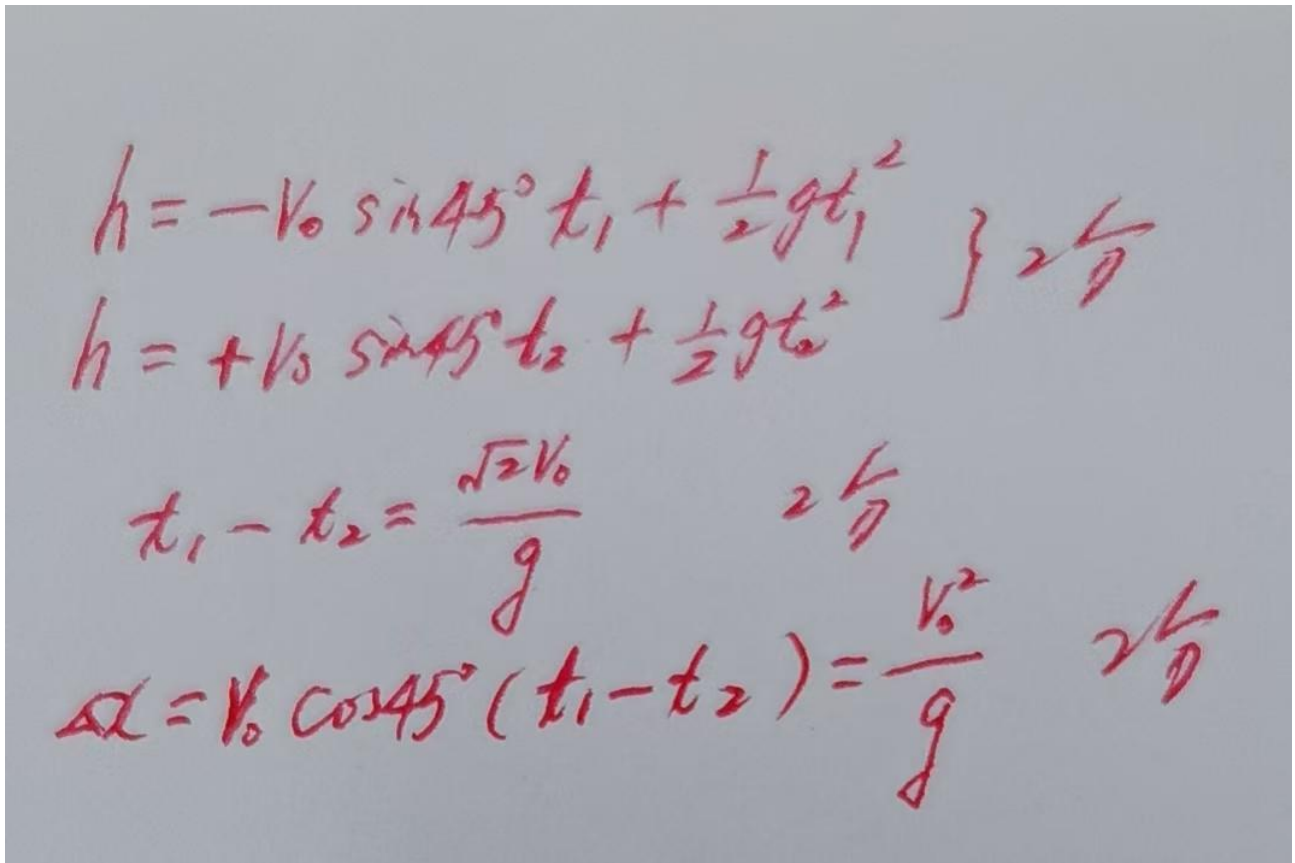 h = -V₀ sin45° t₁ + ½gt₁² } 2分
h = +V₀ sin45° t₂ + ½gt₂²
t₁ - t₂ = √2V₀/g 2分
Δx = V₀ cos45° (t₁ - t₂) = V₀²/g 2分